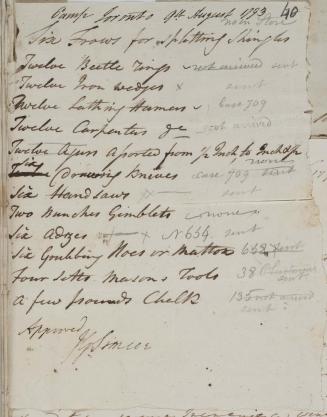 Camp Toronto 9th August 1793 40
not in Store
Six Frows for Splitting Shingles
Twelve Beetle rings not arrived sent
Twelve Iron wedges x sent
Twelve Lathing Hamers Case 709
Twelve Carpenters do not arrived
Twelve Agurs Asorted from 1/2 Inch to Inch &
Six Drawing Kneves case 709 none sent
Six Handsaws x sent
Two Hunches Gimblets none
Six Adzes x No 654 sent
Six Grubbing Hoes or Mattox 652 sent
Four Setts Masons Tools 38
A few pounds Chelk 135 not arrived
sent
Approved
J G Simcoe